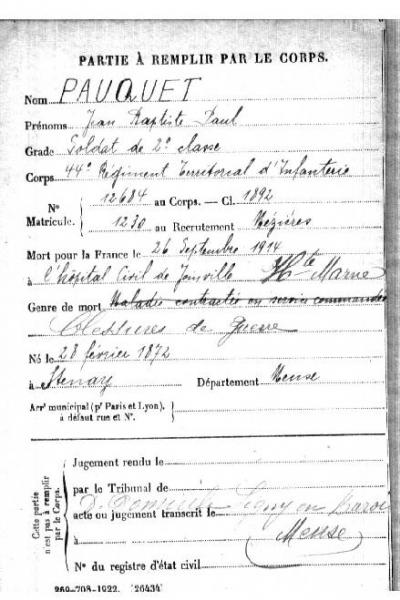 PARTIE À REMPLIR PAR LE CORPS.
Nom PAUQUET
Prénoms Jean Baptiste Paul
Grade Soldat de 2e classe
Corps 44e Régiment Territorial d'Infanterie
N° 12684 au Corps. — Cl. 1892
Matricule. 1230 au Recrutement Mézières
Mort pour la France le 26 Septembre 1914
à l'hôpital Civil de Joinville Hte Marne
Genre de mort Maladie contractée en service commandé
Blessures de guerre
Né le 28 février 1872
à Stenay Département Meuse
Arrt municipal (pr Paris et Lyon),
à défaut rue et N°.
Cette partie
n'est pas à remplir
par le Corps.
Jugement rendu le
par le Tribunal de
D. Domicile Ligny en Barrois
acte ou jugement transcrit le
à Meuse
N° du registre d'état civil
269-708-1922. [26434]